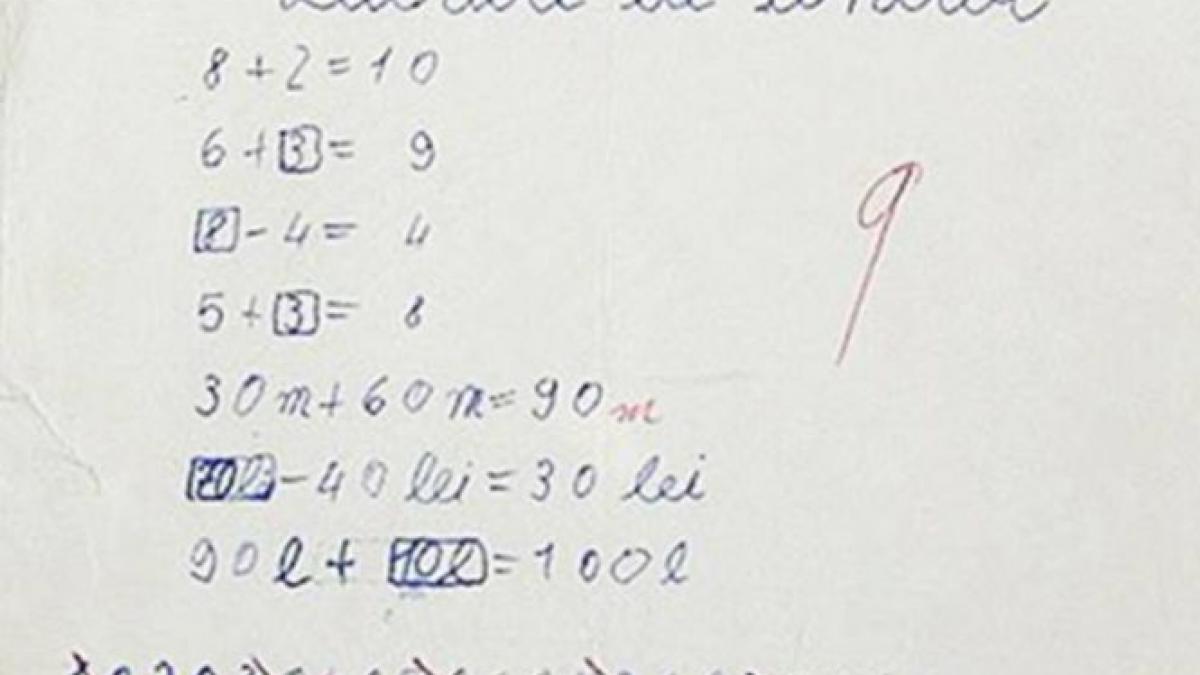 Lucrare de control
8 + 2 = 10
6 + 3 = 9
9
8 - 4 = 4
5 + 3 = 8
30 m + 60 m = 90 m
70 l - 40 lei = 30 lei
90 l + 10 l = 100 l